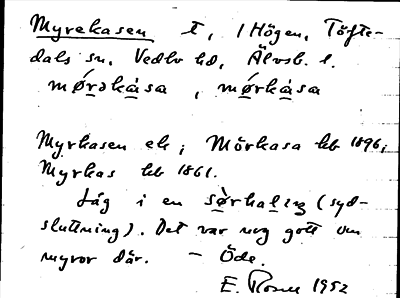 Myrekasen t, 1 Högen, Töfte-
dals sn, Vedbo hd, Älvsb. l.
mǿrəkása, mǿrkása
Myrkasen ek; Mörkasa hfl 1896;
Myrkas hfl 1861.
Låg i en sørhalıŋ (syd-
sluttning). Det var nog gott om
myror där. — Öde.
E. Rosén 1952